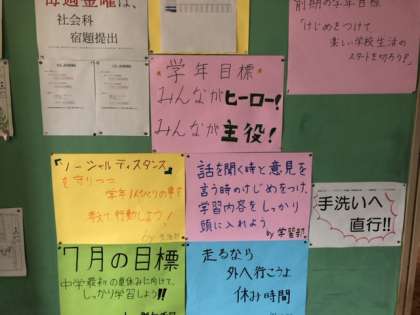 毎週金曜は、
社会科
宿題提出
前期の学年目標
「けじめをつけて
楽しい学校生活の
スタートを切ろう!」
学年目標
みんながヒーロー!
みんなが主役!
「ソーシャルディスタンス」
を守りつつ
学年
考えて行動しよう!
by
話を聞く時と意見を
言う時のけじめをつけ、
学習内容をしっかり
頭に入れよう
by 学習部
手洗いへ
直行!!
7月の目標
中学最初の夏休みに向けて、
しっかり学習しよう!!
走るなら
外へ行こうよ
休み時間